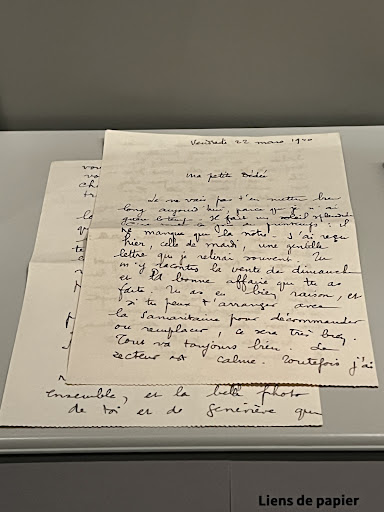 Vendredi 22 mars 1940
Ma petite Dédée
Je ne vais pas t'en mettre bien
long aujourd'hui, parce que je n'ai
guère Il fait un soleil splendide
printemps : il
ne manque que la nôtre. J'ai reçu
hier, celle de mardi, une gentille
lettre que je relirai souvent. Tu
m'y racontes la vente de dimanche
et la bonne affaire que tu as
faite. Tu as eu bien raison, et
si tu peux t'arranger avec
la Samaritaine pour décommander
ou remplacer, ce sera très bien.
Tout va toujours bien. Le
secteur est calme. Toutefois j'ai
ensemble, et la belle photo
de toi et de Geneviève que
Liens de papier